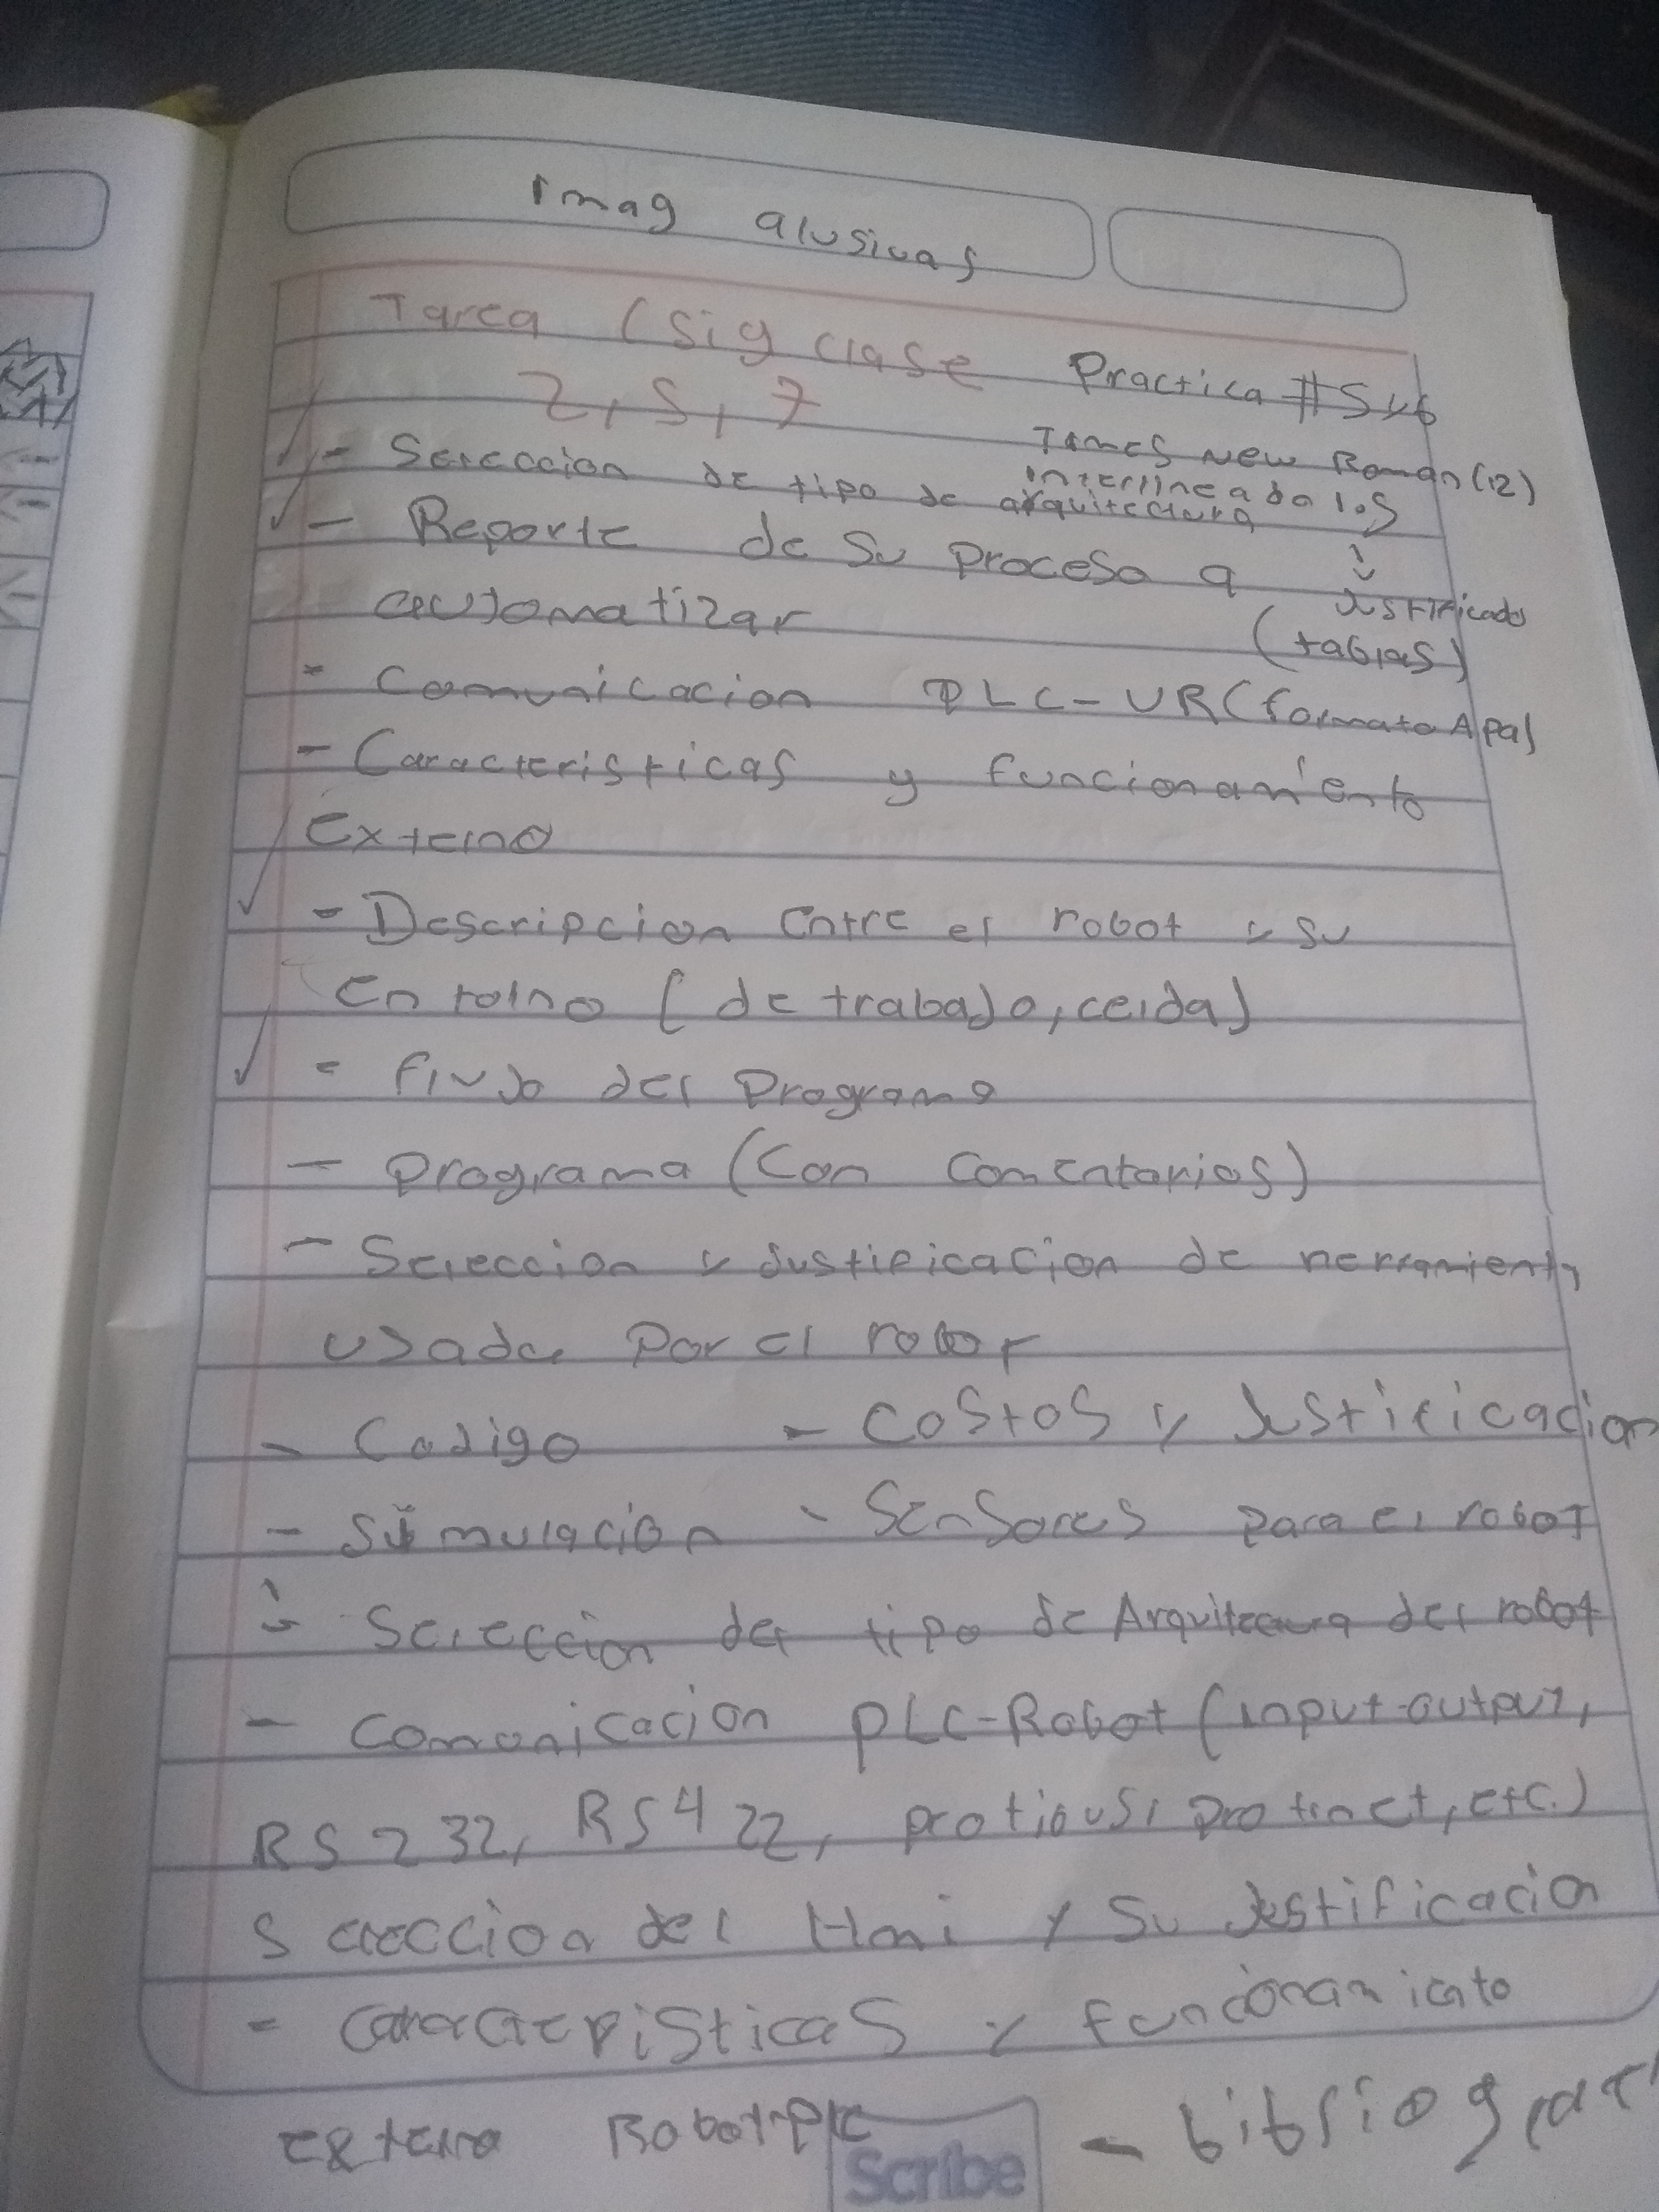 Imag alusivas
Tarea (sig clase
2, 5, 7
Practica #5 y 6
Times New Roman (12)
interlineado 1.5
- Seleccion de tipo de arquitectura
- Reporte de su proceso a
Justificado
automatizar
(tablas)
- Comunicacion PLC-UR (formato Apa)
- Caracteristicas y funcionamiento
Externo
- Descripcion Entre el robot y su
Entorno (de trabajo, celda)
- flujo del programa
- programa (Con Comentarios)
- Seleccion y justificacion de herramienta
usada por el robot
- Codigo - Costos y Justificacion
- Simulacion - Sensores para el robot
- Seleccion del tipo de Arquitectura del robot
- Comunicacion PLC-Robot (input-output,
RS 232, RS 422, profibus, profinet, etc.)
Seleccion del Hmi y su Justificacion
- Caracteristicas y funcionamiento
externo Robot-plc - bibliograf
Scribe